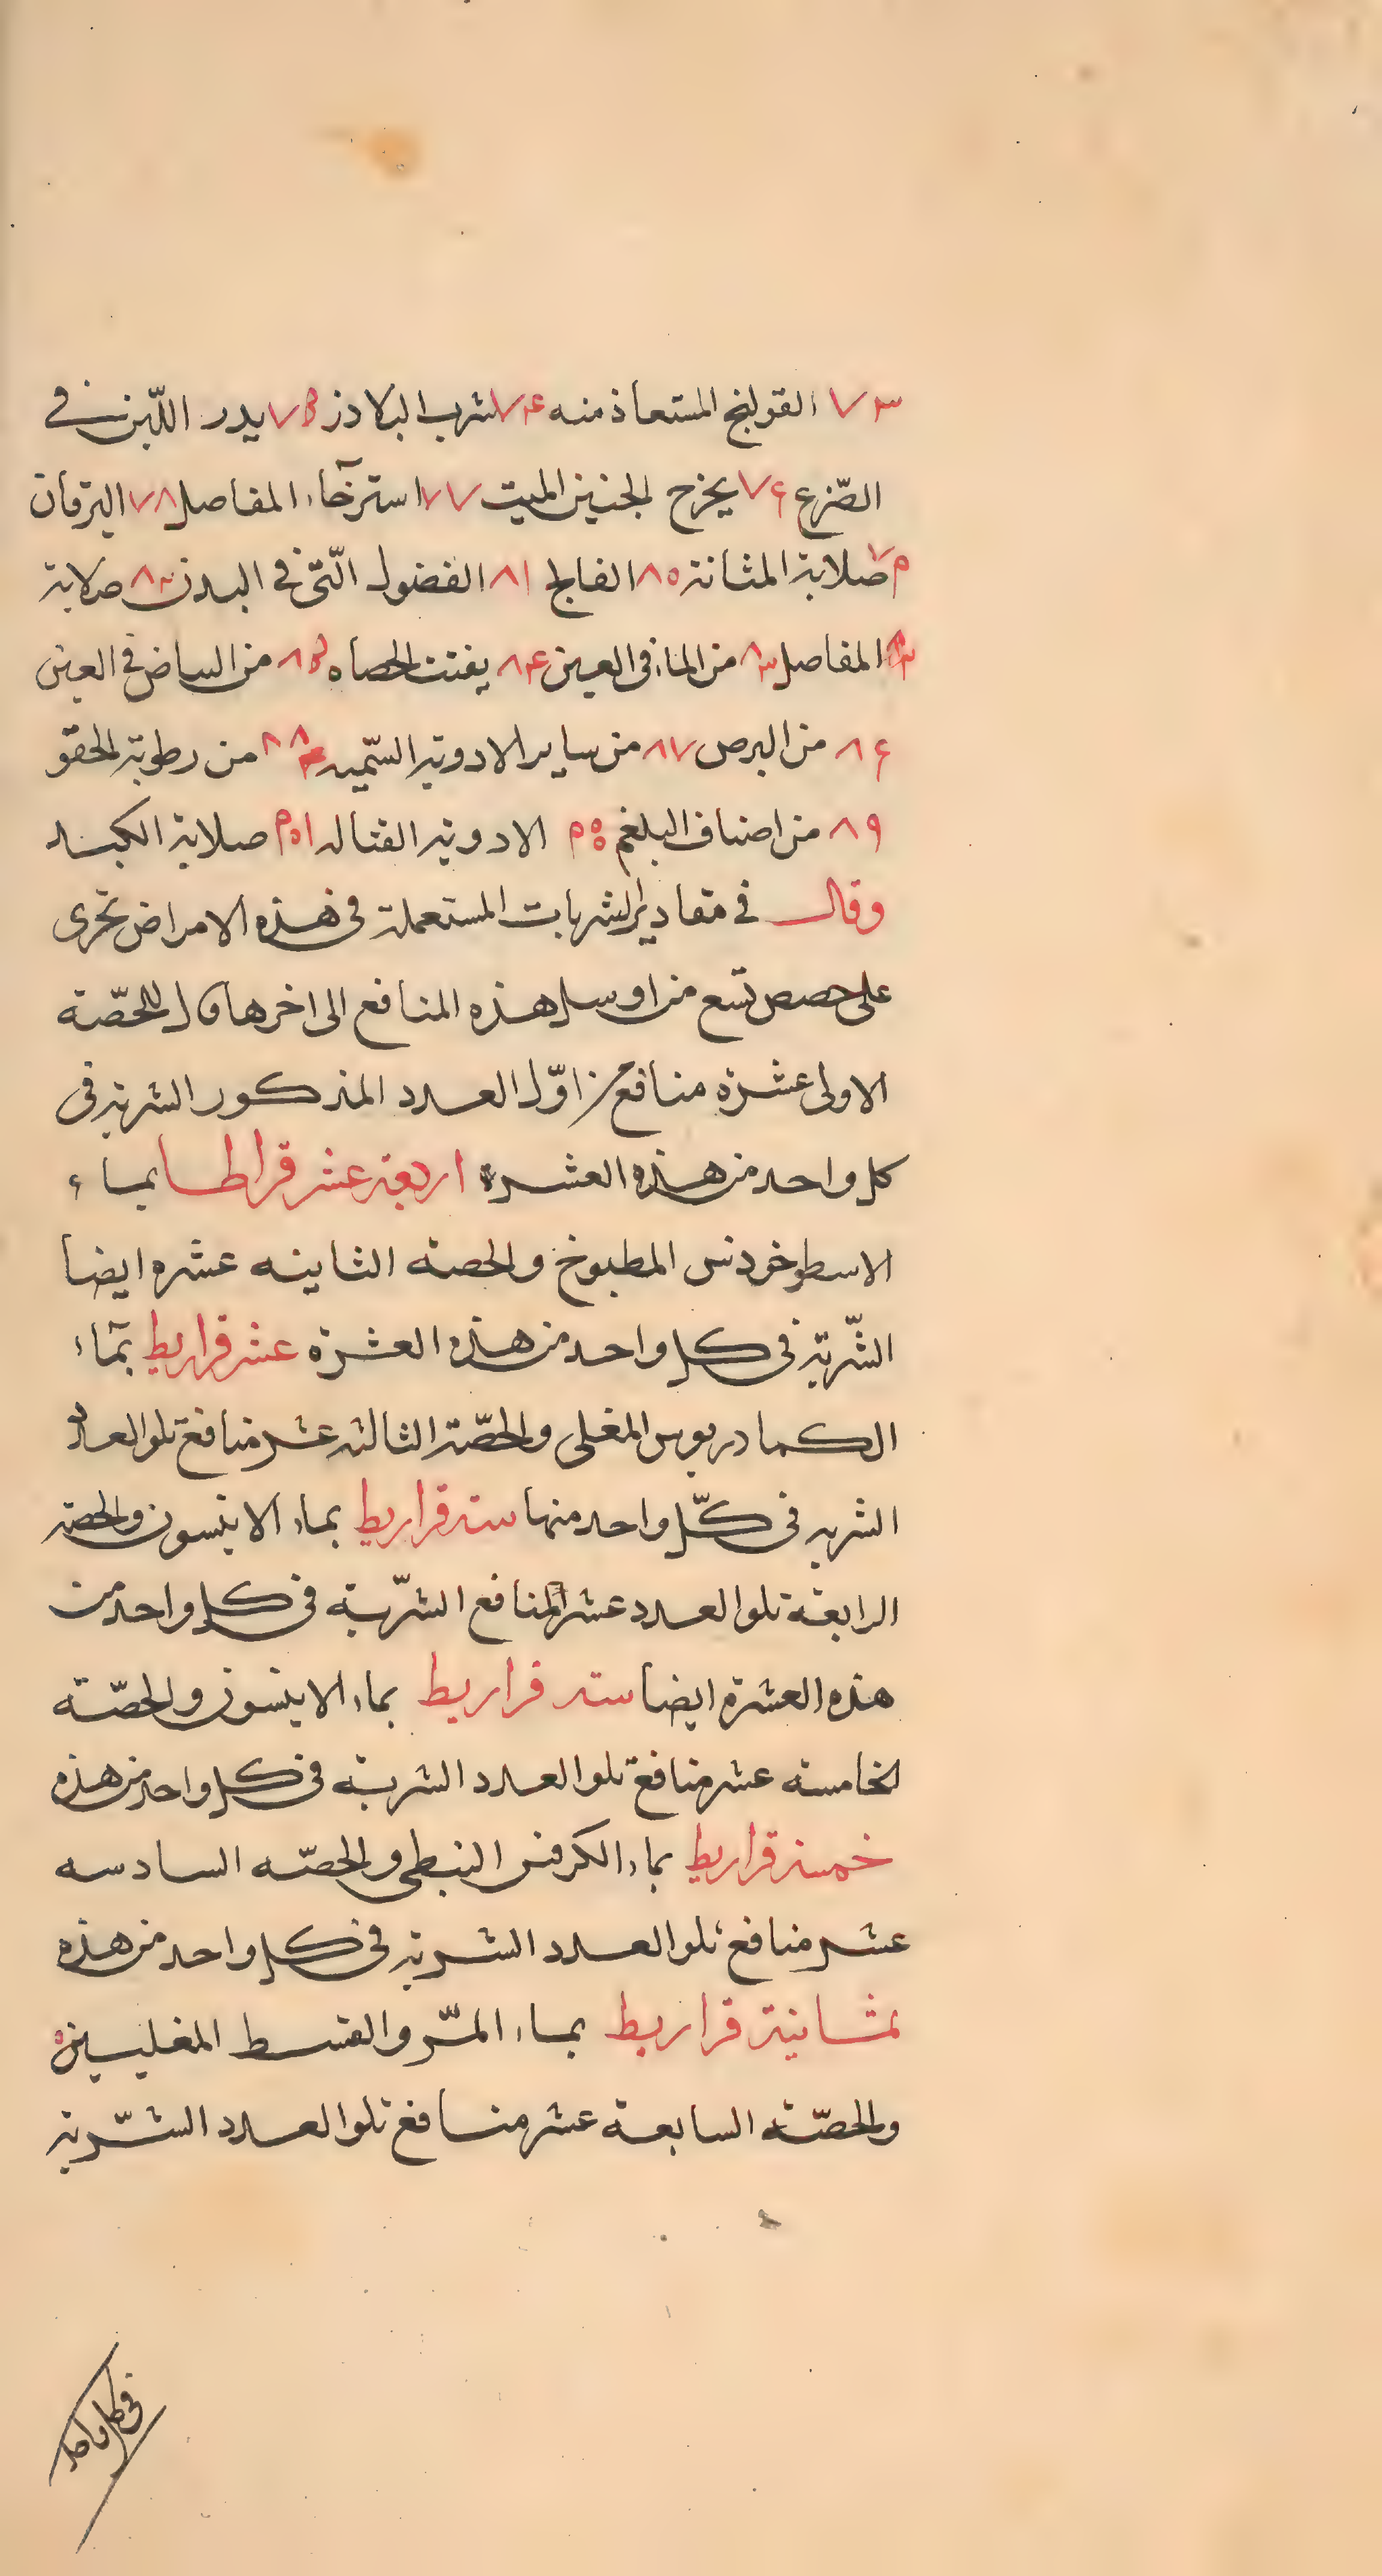 ٧٣ القولنج المستعاذ منه ٧٤ لشرب البلاذر ٧٥ يدر اللّبن في
الضّرع ٧٦ يخرج الجنين الميت ٧٧ استرخآء المفاصل ٧٨ اليرقان
٧٩ صلابة المثانة ٨٠ الفالج ٨١ الفضول الّتى في البدن ٨٢ صلابة
المفاصل ٨٣ من الماء فى العين ٨٤ يفتت الحصاه ٨٥ من البياض في العين
٨٦ من البرص ٨٧ من ساير الادوية السّميه ٨٨ من رطوبة الحقو
٨٩ من اصناف البلغم ٩٠ الادوية القتاله ٩١ صلابة الكبد
وقال في مقادير الشربات المستعملة في هذه الامراض تجرى
على حصص تسع من اول هذه المنافع الى اخرها فاول للحصّة
الاولى عشرة منافع من اوّل العدد المذكور الشربة فى
كل واحد من هذه العشرة اربعة عشر قراطا بماء
الاسطوخودس المطبوخ والحصة الثانيه عشره ايضا
الشّربة فى كل واحد من هذه العشرة عشر قراريط بمآء
الكمادريوس المغلى والحصّة الثالثه عشر منافع تلو العدد
الشربه فى كلّ واحد منها ستة قراريط بماء الانيسون والحصة
الرابعة تلو العدد عشر المنافع الشّربة فى كل واحد من
هذه العشرة ايضا ستة قراريط بماء الانيسون والحصّة
الخامسة عشر منافع تلو العدد الشربة فى كل واحد من هذه
خمسة قراريط بماء الكرفس النبطى والحصّه السادسه
عشر منافع تلو العدد الشربة فى كل واحد من هذه
ثمانية قراريط بماء المرّ والقسط المغليين
والحصّة السابعة عشر منافع تلو العدد الشّربة
فى كل واحد